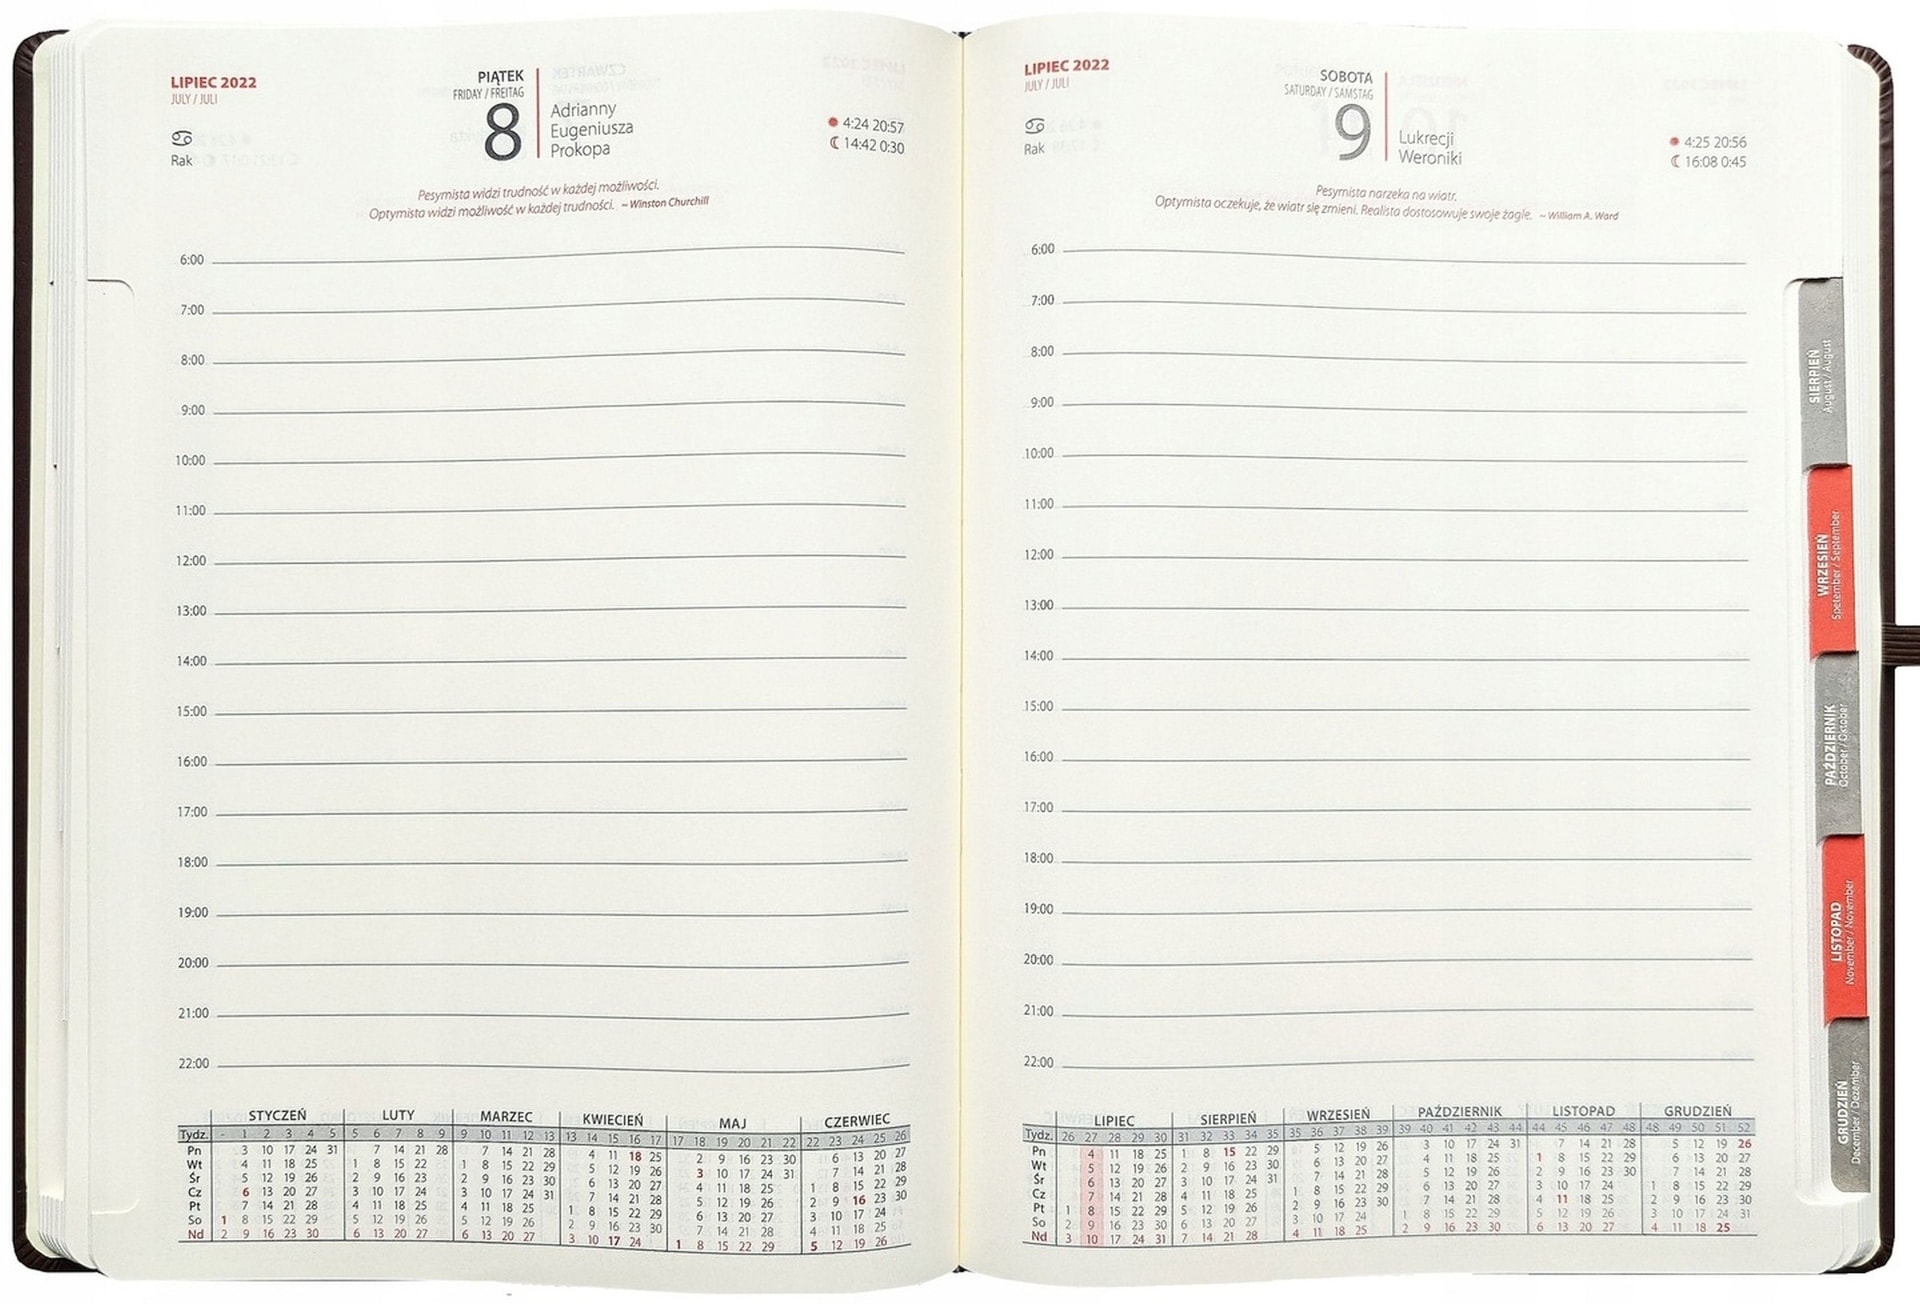 LIPIEC 2022
JULY / JULI
Rak
PIĄTEK
FRIDAY / FREITAG
8
Adrianny
Eugeniusza
Prokopa
4:24 20:57
14:42 0:30
Pesymista widzi trudność w każdej możliwości.
Optymista widzi możliwość w każdej trudności. ~ Winston Churchill
6:00
7:00
8:00
9:00
10:00
11:00
12:00
13:00
14:00
15:00
16:00
17:00
18:00
19:00
20:00
21:00
22:00
STYCZEŃ LUTY MARZEC KWIECIEŃ MAJ CZERWIEC
Tydz. - 1 2 3 4 5 5 6 7 8 9 9 10 11 12 13 13 14 15 16 17 17 18 19 20 21 22 22 23 24 25 26
Pn 3 10 17 24 31 7 14 21 28 7 14 21 28 4 11 18 25 2 9 16 23 30 6 13 20 27
Wt 4 11 18 25 1 8 15 22 1 8 15 22 29 5 12 19 26 3 10 17 24 31 7 14 21 28
Śr 5 12 19 26 2 9 16 23 2 9 16 23 30 6 13 20 27 4 11 18 25 1 8 15 22 29
Cz 6 13 20 27 3 10 17 24 3 10 17 24 31 7 14 21 28 5 12 19 26 2 9 16 23 30
Pt 7 14 21 28 4 11 18 25 4 11 18 25 1 8 15 22 29 6 13 20 27 3 10 17 24
So 1 8 15 22 29 5 12 19 26 5 12 19 26 2 9 16 23 30 7 14 21 28 4 11 18 25
Nd 2 9 16 23 30 6 13 20 27 6 13 20 27 3 10 17 24 1 8 15 22 29 5 12 19 26
LIPIEC 2022
JULY / JULI
Rak
SOBOTA
SATURDAY / SAMSTAG
9
Lukrecji
Weroniki
4:25 20:56
16:08 0:45
Pesymista narzeka na wiatr.
Optymista oczekuje, że wiatr się zmieni. Realista dostosowuje swoje żagle. ~ William A. Ward
6:00
7:00
8:00
9:00
10:00
11:00
12:00
13:00
14:00
15:00
16:00
17:00
18:00
19:00
20:00
21:00
22:00
LIPIEC SIERPIEŃ WRZESIEŃ PAŹDZIERNIK LISTOPAD GRUDZIEŃ
Tydz. 26 27 28 29 30 31 32 33 34 35 35 36 37 38 39 39 40 41 42 43 44 44 45 46 47 48 48 49 50 51 52
Pn 4 11 18 25 1 8 15 22 29 5 12 19 26 3 10 17 24 31 7 14 21 28 5 12 19 26
Wt 5 12 19 26 2 9 16 23 30 6 13 20 27 4 11 18 25 1 8 15 22 29 6 13 20 27
Śr 6 13 20 27 3 10 17 24 31 7 14 21 28 5 12 19 26 2 9 16 23 30 7 14 21 28
Cz 7 14 21 28 4 11 18 25 1 8 15 22 29 6 13 20 27 3 10 17 24 1 8 15 22 29
Pt 1 8 15 22 29 5 12 19 26 2 9 16 23 30 7 14 21 28 4 11 18 25 2 9 16 23 30
So 2 9 16 23 30 6 13 20 27 3 10 17 24 1 8 15 22 29 5 12 19 26 3 10 17 24 31
Nd 3 10 17 24 31 7 14 21 28 4 11 18 25 2 9 16 23 30 6 13 20 27 4 11 18 25
SIERPIEŃ
August / August
WRZESIEŃ
Spetember / September
PAŹDZIERNIK
October / Oktober
LISTOPAD
November / November
GRUDZIEŃ
December / Dezember